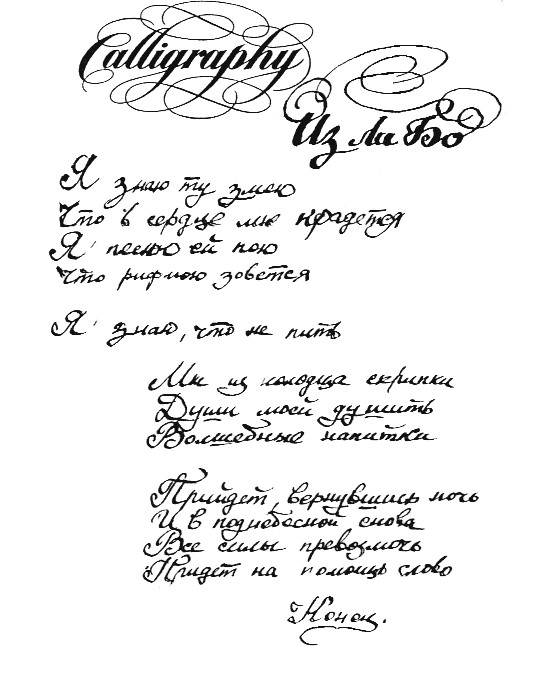 Calligraphy
Из Ли Бо
Я знаю ту змею
Что в сердце мне крадется
Я песню ей пою
Что рифмою зовется
Я знаю, что не пить
Ми из колодца скрипки
Души моей душить
Волшебные напитки
Прийдет, вернувшись ночь
И в поднебесной снова
Все силы превозмочь
Прийдет на помощь слово
Конец.